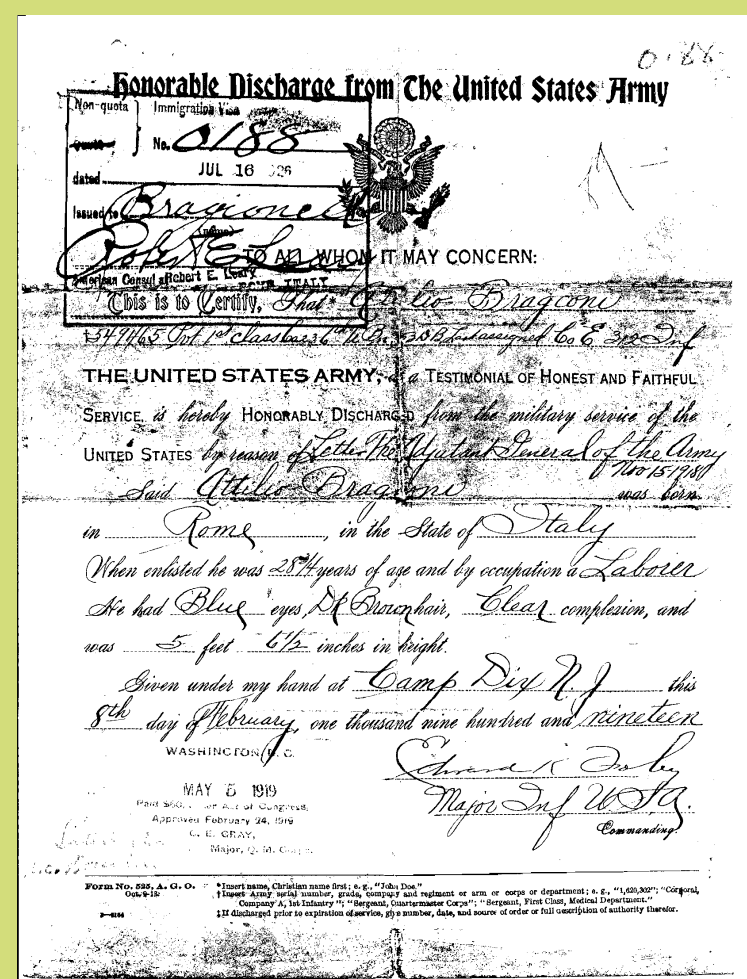 0188
Honorable Discharge from The United States Army
Non-quota } Immigration Visa
quota } No. 0188
dated JUL 16 1926
Issued to Bragioneci
(name)
Robert E. Leary
American Consul Robert E. Leary
ROME, ITALY
TO ALL WHOM IT MAY CONCERN:
This is to Certify, That* Attilio Bragconi
Pvt 1st class Last assigned Co E 312 Inf
THE UNITED STATES ARMY, as a TESTIMONIAL OF HONEST AND FAITHFUL
SERVICE, is hereby HONORABLY DISCHARGED from the military service of the
UNITED STATES by reason of Letter The Adjutant General of the Army
Nov 15 1918
Said Attilio Bragconi was born
in Rome, in the State of Italy
When enlisted he was 28 3/4 years of age and by occupation a Laborer
He had Blue eyes, Dk Brown hair, Clear complexion, and
was 5 feet 6 1/2 inches in height.
Given under my hand at Camp Dix N. J this
8th day of February, one thousand nine hundred and nineteen
WASHINGTON, D.C.
Edward K
MAY 5 1919
Major Inf U.S.A.
Paid $60. Act of Congress,
Approved February 24, 1919
Commanding.
G. E. GRAY,
Major, Q. M. Corps.
FORM No. 525, A. G. O.
Oct. 9-18.
3-6164
*Insert name, Christian name first; e. g., "John Doe."
†Insert Army serial number, grade, company and regiment or arm or corps or department; e. g., "1,620,302"; "Corporal,
Company A, 1st Infantry"; "Sergeant, Quartermaster Corps"; "Sergeant, First Class, Medical Department."
‡If discharged prior to expiration of service, give number, date, and source of order or full description of authority therefor.